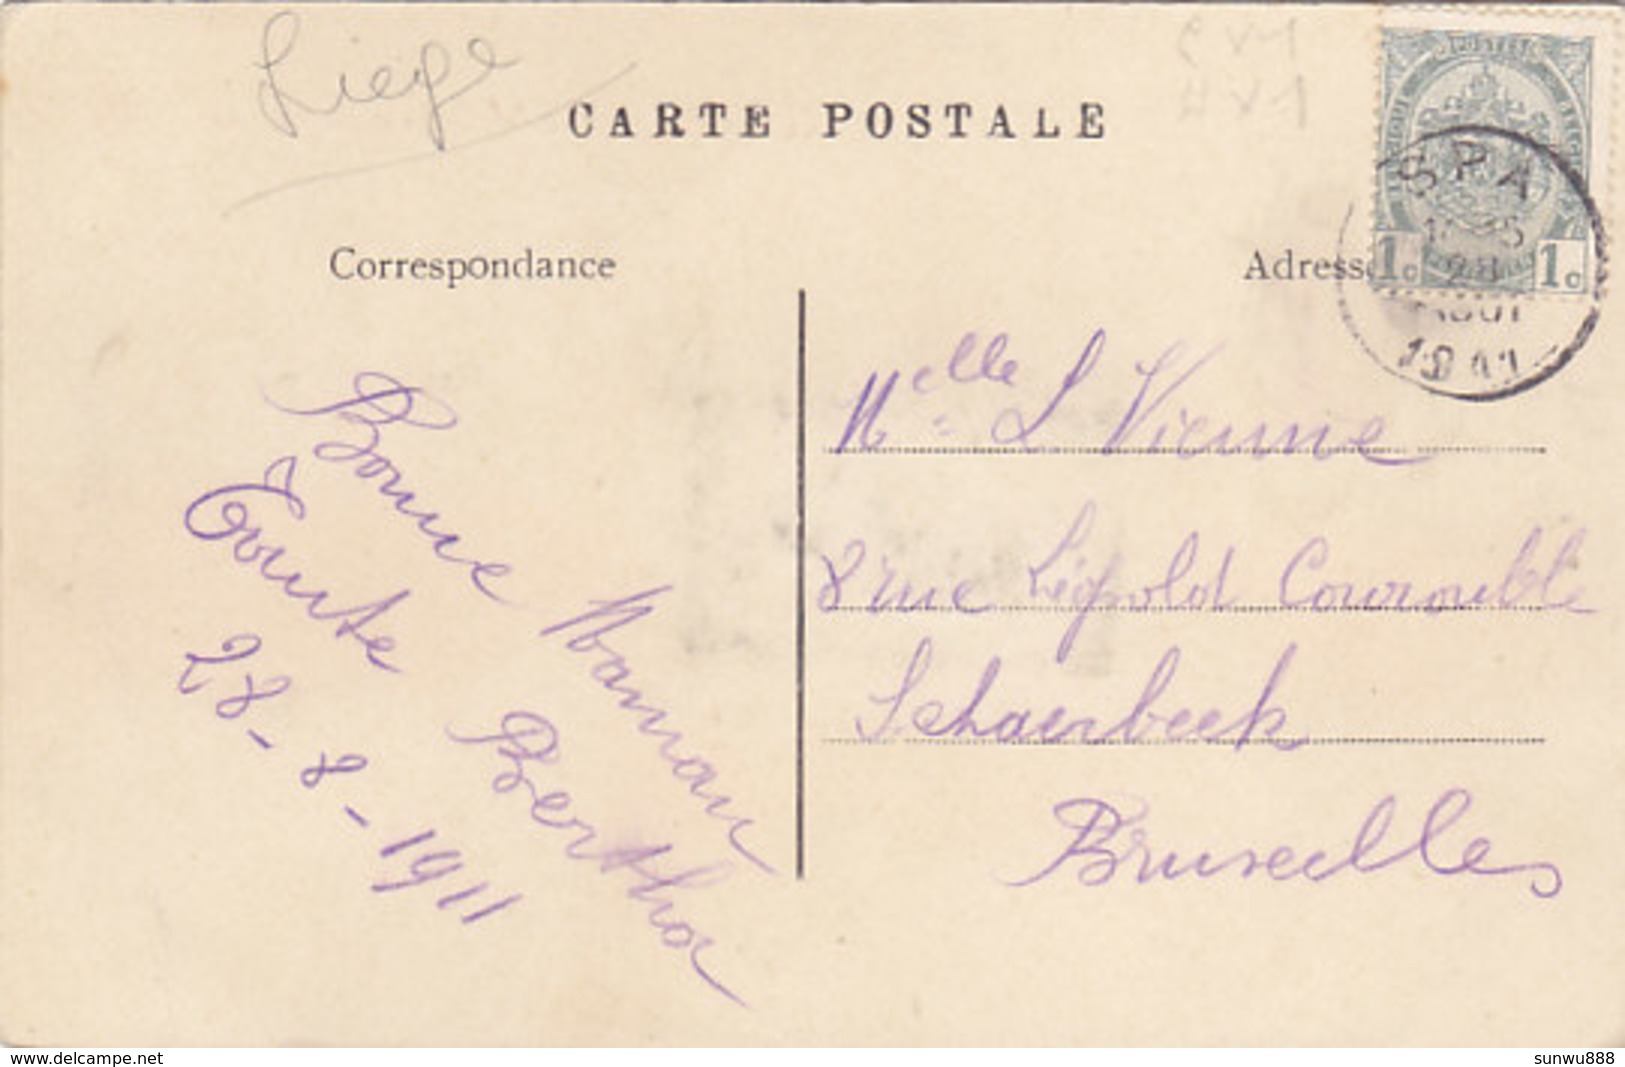 Liege
CARTE POSTALE
Correspondance
Adresse
SPA
28
AOUT
1911
1c 1c
Bonne Maman
Toute
Bertha
28-8-1911
Melle L Vienne
8 rue Léopold Courouble
Schaerbeek
Bruxelles
www.delcampe.net
sunwu888